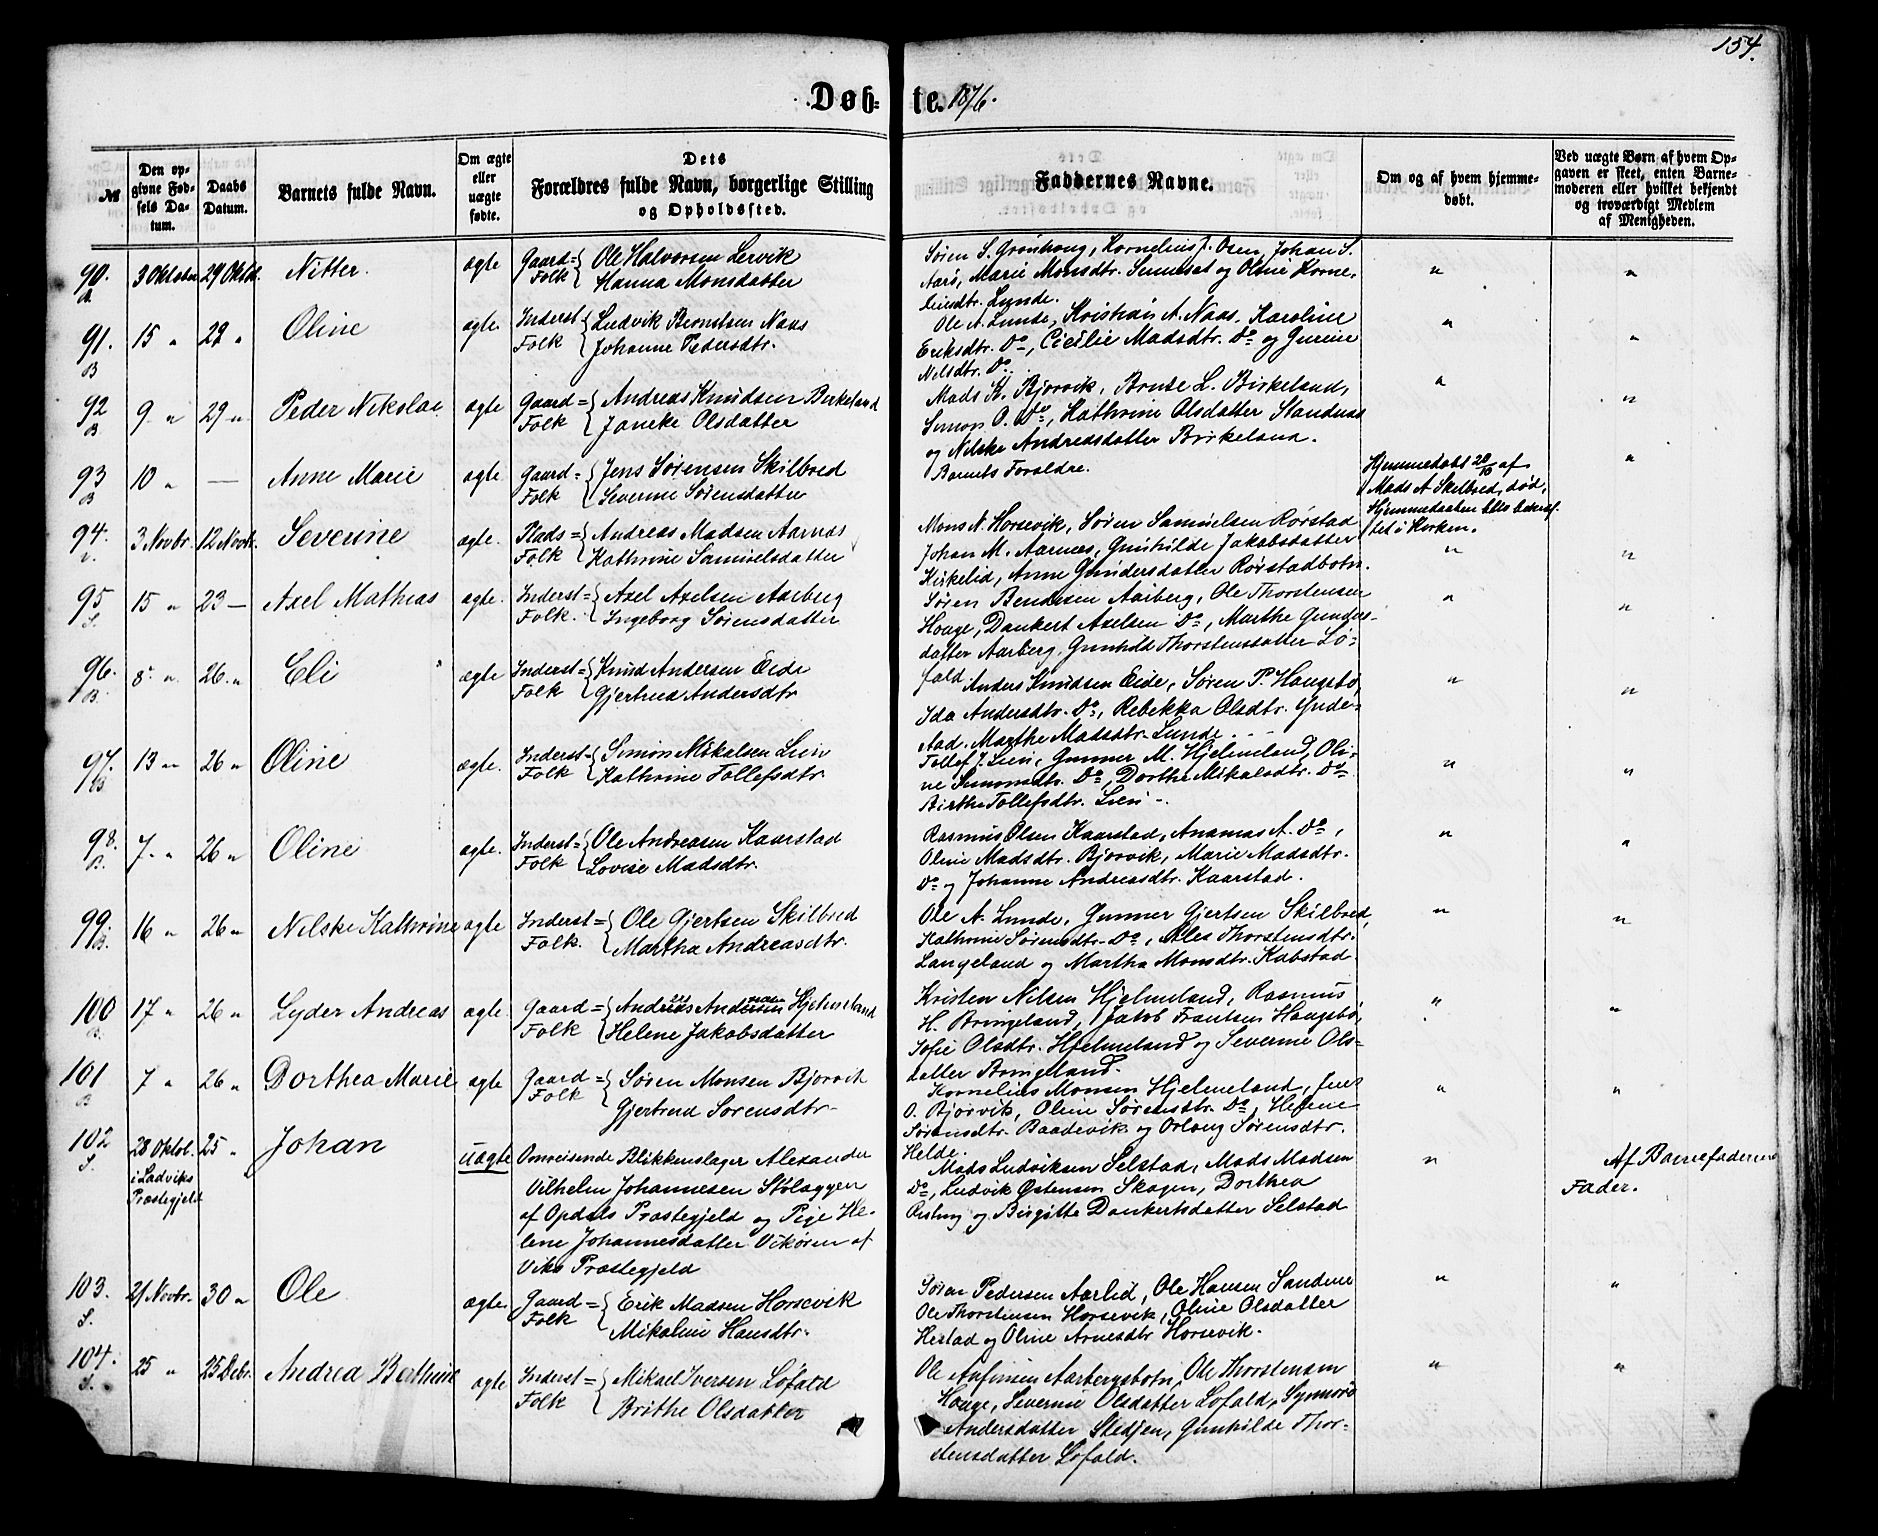 154.
Døbte. 1876.
№
Den opgivne Fødsels Datum.
Daabs Datum.
Barnets fulde Navn.
Om ægte eller uægte fødte.
Dets Forældres fulde Navn, borgerlige Stilling og Opholdssted.
Faddernes Navne.
Om og af hvem hjemmedøbt.
Ved uægte Børn af hvem Opgaven er skeet, enten Barnemoderen eller hvilket bekjendt og troværdigt Medlem af Menigheden.
90. B. 3 Oktober 29 Oktb. Nitter. ægte Gaard= Folk { Ole Halvorsen Lervik
Hanna Monsdatter
Søren S. Grønhoug, Kornelius J. Osen, Johan S.
Aarø, Marie Monsdtr. Sunnset og Oline Korne,
liusdtr. Lunde. " "
91. B 15 " 29 " Oline ægte. Inderst= Folk { Ludvik Berntsen Naas
Johanne Pedersdtr.
Ole A. Lunde, Kristian A. Naas, Karoline
Eriksdtr. Do, Cicilie Madsdtr. Do og Gurine
Nilsdtr. Do. " "
92 B 9 " 29 " Peder Nikolai ægte Gaard= Folk { Andreas Knudsen Birkeland
Janeke Olsdatter
Mads K. Bjorvik, Brute L. Birkeland,
Simon O. Do, Kathrine Olsdatter Standnæs
og Nilske Andreasdatter Birkeland. " "
93 B 10 " — Anne Marie ægte. Gaard= Folk { Jens Sørensen Skilbred
Severine Sørensdatter
Barnets Forældre.
Hjemmedøbt 20/10 af
Mads A Skilbred, død,
Hjemmedaaben blev bekræf
tet i Kirken. "
94. 3 Novbr. 12 Novb. Severine ægte. Plads= Folk { Andreas Madsen Aarnæs
Kathrine Samuelsdatter
Mons N. Horsevik, Søren Samuelsen Rørstad
Johan M. Aarnæs, Gunhilde Jakobsdatter
Kirkelid, Anne Gundersdatter Rørstadbotn. " "
95 S. 15 " 23 — Axel Mathias ægte. Inderst= Folk. { Axel Axelsen Aarberg
Ingeborg Sørensdatter
Søren Bendixen Aarberg, Ole Thorstensen
Houge, Dankert Axelsen Do, Marthe Gunders-
datter Aarberg, Gunhild Thorstensdatter Lø=
fald " "
96. B. 5 " 26. " Eli ægte Inderst= Folk { Knud Andersen Eide
Gjertrud Andersdtr
Anders Knudsen Eide, Søren P. Hougsbø,
Ida Andersdtr. Do, Rebekka Olsdtr. Ynde-
stad. Marthe Madsdtr. Lunde. " "
97. B 13 " 26 " Oline ægte. Inderst= Folk { Simon Mikalsen Lien
Kathrine Tollefsdtr.
Tollef J. Lien, Gunner M. Hjelmeland, Oli-
ne Simonsdtr. Do, Dorthe Mikalsdtr. Do
Birthe Tollefsdtr. Lien -. " "
98. B. 7. " 26 " Oline ægte. Inderst= Folk { Ole Andreasen Kaarstad
Lovise Madsdtr.
Rasmus Olsen Kaarstad, Ananias A. Do,
Oline Madsdtr. Bjorvik, Marie Madsdtr.
Do og Johanne Andreasdtr. Kaarstad. " "
99. B. 16 " 26 " Nilske Kathrine ægte Inderst= Folk. { Ole Gjertsen Skilbred
Martha Andreasdtr.
Ole A. Lunde, Gunner Gjertsen Skilbred,
Kathrine Sørensdtr. Do, Ales Thorstensdtr.
Langeland og Martha Monsdtr. Kabstad. " "
100 B. 17 " 26 " Lyder Andreas ægte Gaard= Folk { Andreas Andersen Hjelmeland
Helene Jakobsdatter
Kristen Nilsen Hjelmeland, Rasmus
H. Bringeland, Jakob Frantsen Hougsbø,
Sofie Olsdtr. Hjelmeland og Severine Ols-
datter Bringeland. " "
101 B 7 " 26 " Dorthea Marie ægte Gaard= Folk { Søren Monsen Bjorvik
Gjertrud Sørensdtr-
Kornelius Monsen Hjelmeland, Jens
O. Bjorvik, Oline Sørensdtr. Do, Helene
Sørensdtr. Baadevik og Orlaug Sørensdtr.
Helde. " "
102 S. 28 Oktob. i Ladviks Præstegjeld 25 " Johan uægte Omreisende Blikkenslager Alexander
Vilhelm Johannesen Stølaggen
af Opdals Præstegjeld og Pige He-
lene Johannesdatter Vikøren af
Viks Præstegjeld
Mads Ludviksen Selstad, Mads Madsen
Do, Ludvik Østensen Skagen, Dorthea
og Birgitte Dankertsdatter Selstad " Af Barnefaderens
Fader.
103. S. 21 Novbr. 30 " Ole ægte. Gaard= Folk { Erik Madsen Horsevik
Mikaline Hansdtr.
Søren Pedersen Aarlid, Ole Hansen Sandnes
Ole Thorstensen Horsevik, Oline Olsdatter
Hestad og Oline Arnesdtr Horsevik. " "
104. S. 25 " 25 Debr. Andrea Bertine ægte Inderst= Folk { Mikael Iversen Løfald
Brithe Olsdatter
Ole Anfinsen Aarbergsbotn, Ole Thorstensen
Houge, Severine Olsdatter Løfald, Synnøve
Andersdatter Stedjen, Gunhilde Thor-
stensdatter Løfald. " "